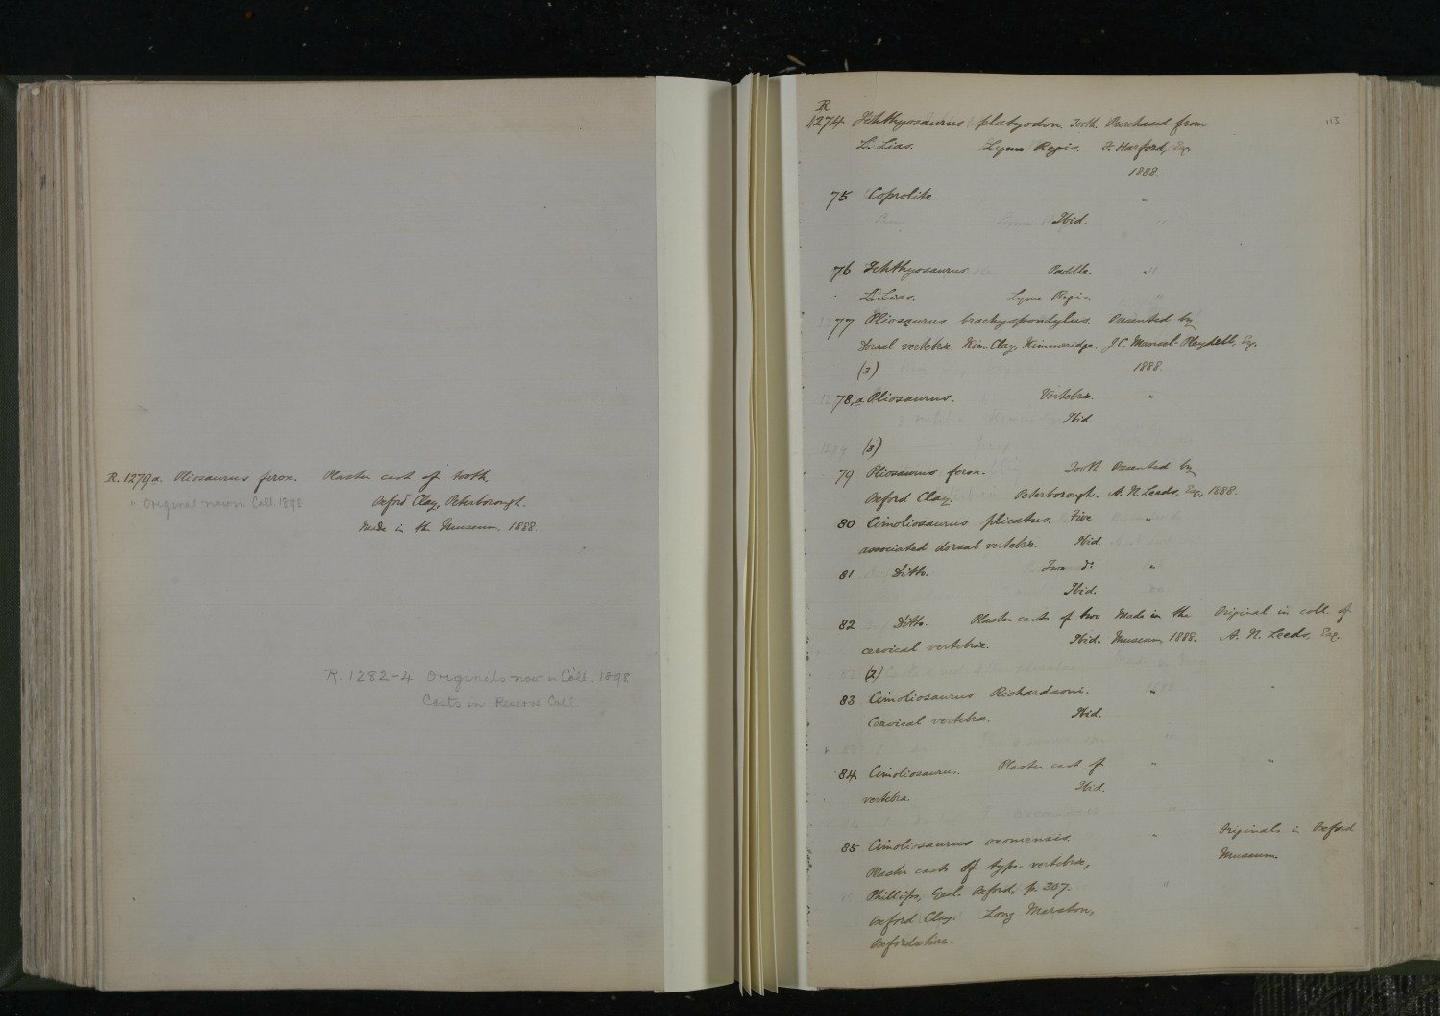 R. 1279a. Pliosaurus ferox. Plaster cast of tooth.
" Original now in Coll. 1898
Oxford Clay, Peterborough.
Made in the Museum, 1888.
R. 1282-4 Originals now in Coll. 1898
Casts in Reserve Coll.
113
R
1274 Ichthyosaurus platyodon. Tooth. Purchased from
L. Lias. Lyme Regis. F. Harford, Esq.
1888.
75 Coprolite "
Ibid.
76 Ichthyosaurus Paddle. "
L. Lias. Lyme Regis.
77 Pliosaurus brachyspondylus. Presented by
Dorsal vertebræ. Kim. Clay, Kimmeridge. J.C. Mansel-Pleydell, Esq.
(3) 1888.
78,a Pliosaurus. Vertebræ. "
Ibid
(3)
79 Pliosaurus ferox. Tooth Presented by
Oxford Clay. Peterborough. A. N. Leeds, Esq. 1888.
80 Cimoliosaurus plicatus. Five "
associated dorsal vertebræ. Ibid.
81 Ditto. Two do "
Ibid.
82 Ditto. Plaster casts of two Made in the Original in coll. of
cervical vertebræ. Ibid. Museum, 1888. A. N. Leeds, Esq.
(2)
83 Cimoliosaurus Richardsoni. " "
Cervical vertebra. Ibid.
84 Cimoliosaurus. Plaster cast of " "
vertebra. Ibid.
85 Cimoliosaurus oxoniensis. " Originals in Oxford
Plaster casts of type-vertebræ, Museum.
Phillips, Geol. Oxford, p. 307.
Oxford Clay. Long Marston,
Oxfordshire.